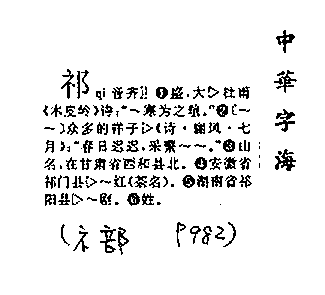 中華字海
祁 qí 音齐 ❶盛,大▷杜甫
《木皮岭》诗:“~寒为之热。”❷[~
~]众多的样子▷《诗·豳风·七
月》:“春日迟迟,采蘩~~。”❸山
名,在甘肃省西和县北。❹安徽省
祁门县▷~红(茶名)。❺湖南省祁
阳县▷~剧。❻姓。
(礻部 P982)